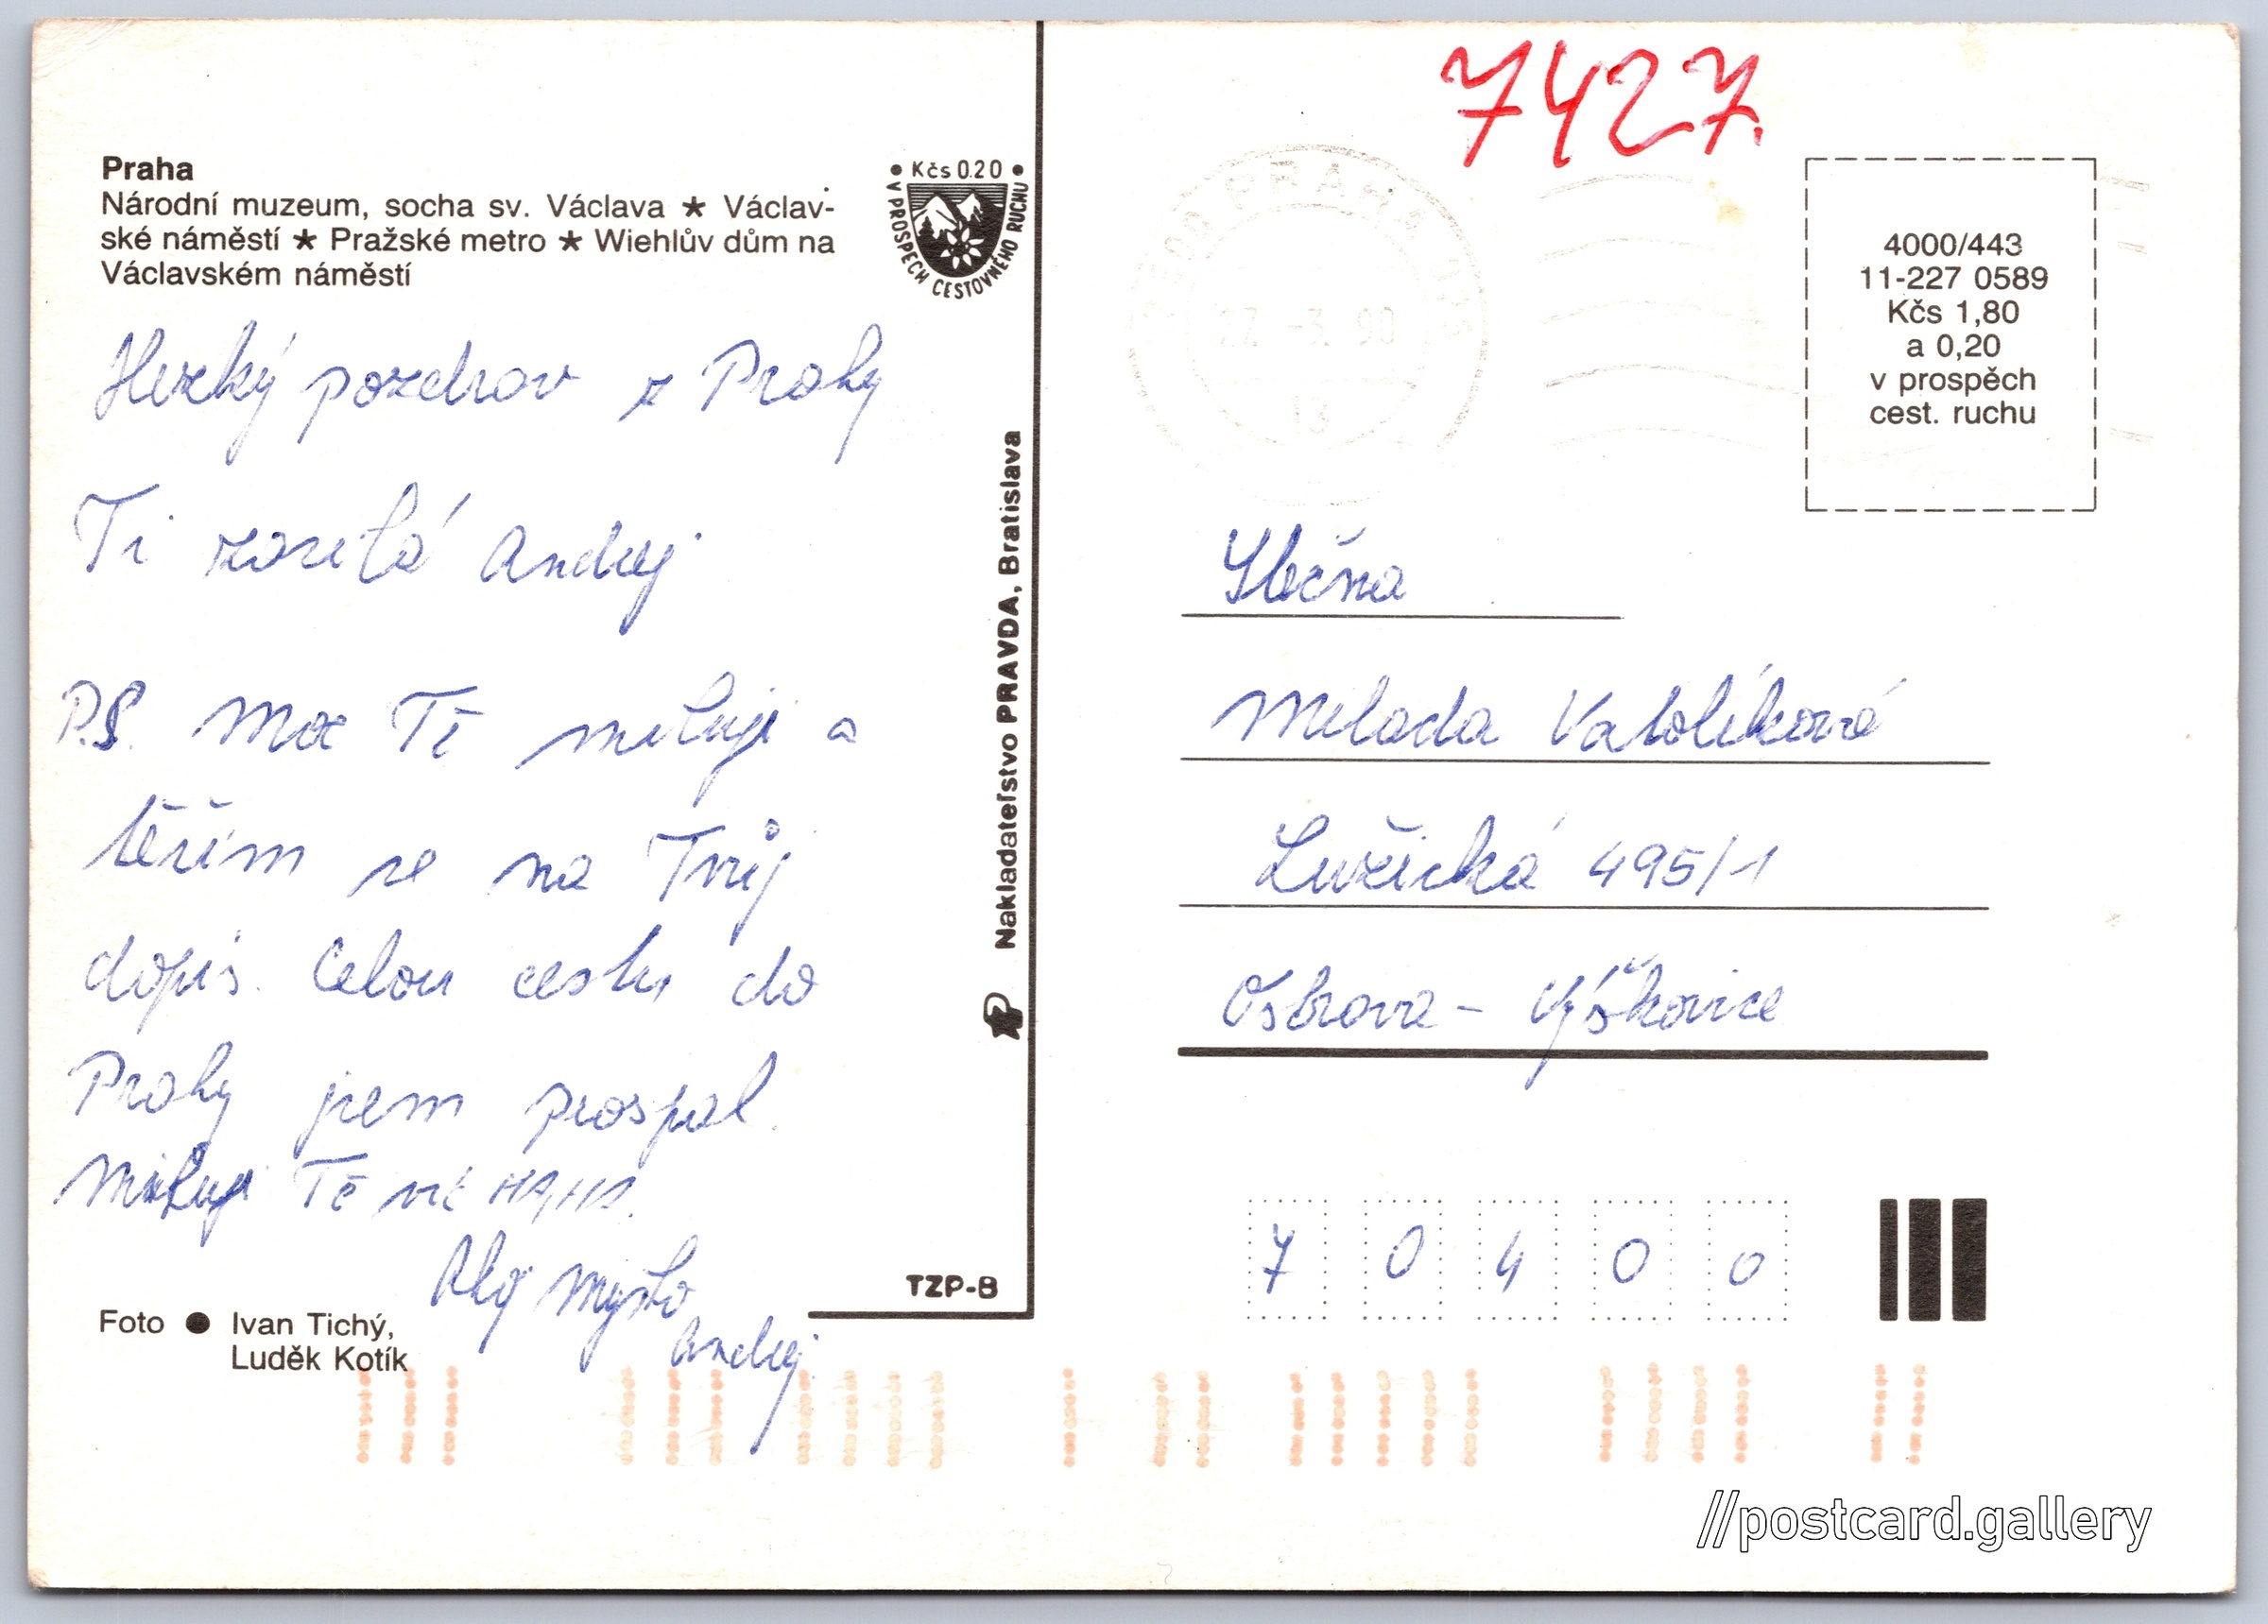 Praha
Národní muzeum, socha sv. Václava ★ Václav-
ské náměstí ★ Pražské metro ★ Wiehlův dům na
Václavském náměstí
Kčs 0.20
V PROSPĚCH CESTOVNÉHO RUCHU
Hezký pozdrav z Prahy
Ti zasílá Andrej
P.S. Moc Tě miluji a
těším se na Tvůj
dopis. Celou cestu do
Prahy jsem prospal.
Miluji Tě víc HA, HA.
Ahoj
Andrej
Foto ● Ivan Tichý,
Luděk Kotík
TZP-8
Nakladateľstvo PRAVDA, Bratislava
7427.
PRAHA
27. -3. 90
13
4000/443
11-227 0589
Kčs 1,80
a 0,20
v prospěch
cest. ruchu
Slečna
Milada Vatolíková
Lužická 495/1
Ostrava - Výškovice
7 0 4 0 0
//postcard.gallery